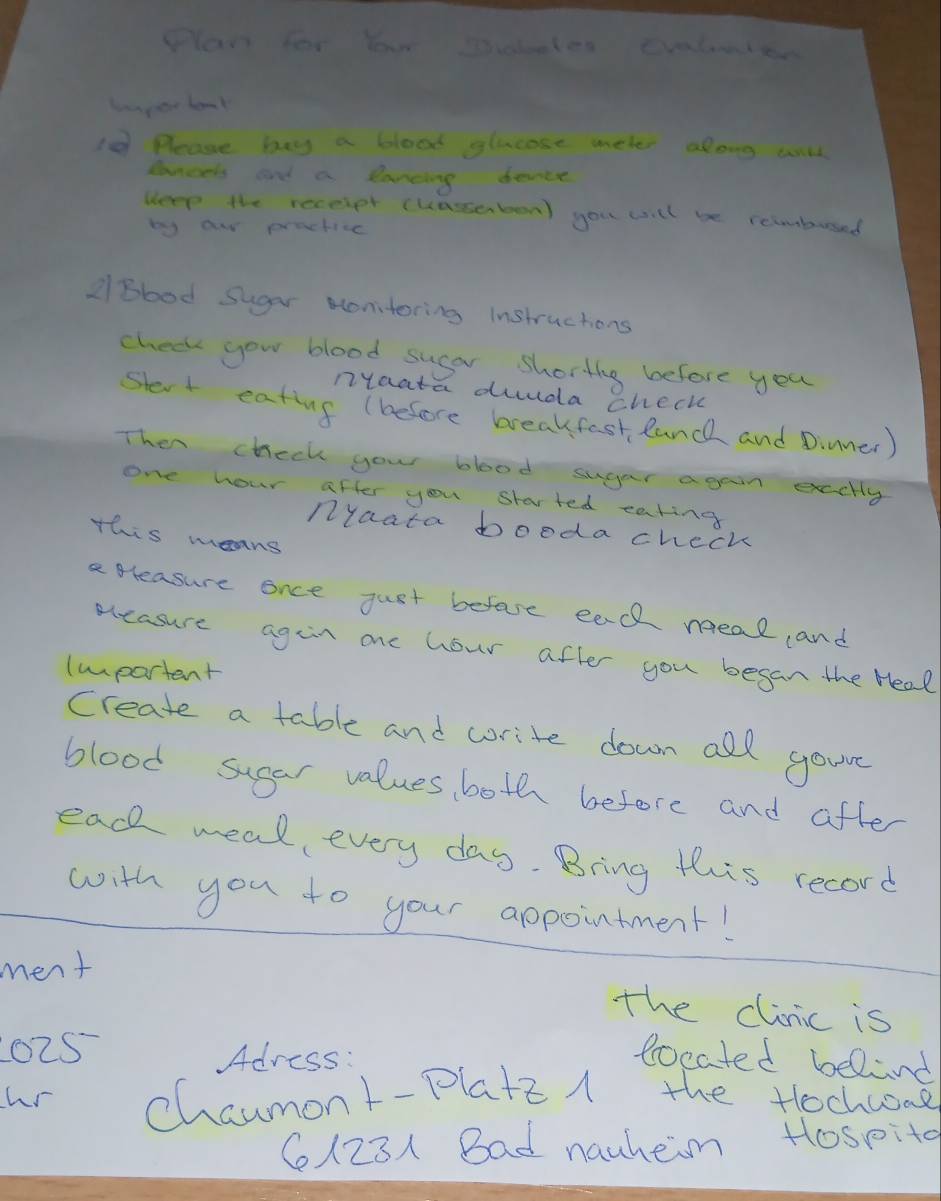 Plan for Your Diabetes Evaluation
Important
1) Please buy a blood glucose meter along with
lancets and a lancing device
Keep the receipt (Kassenbon) you will be reimbursed
by our practice
2) Blood Sugar Monitoring Instructions
Check your blood sugar shortly before you
nyaata duuda check
Start eating (before breakfast, lunch and Dinner)
Then check your blood sugar again exactly
one hour after you started eating
nyaata booda check
this means
Measure once just before each meal, and
Measure again one hour after you began the Meal
Important
Create a table and write down all your
blood sugar values, both before and after
each meal, every day. Bring this record
with you to your appointment!
ment
2025
Uhr
Adress:
Chaumont-Platz 1
61231 Bad nauheim
the clinic is
located behind
the Hochwal
Hospita